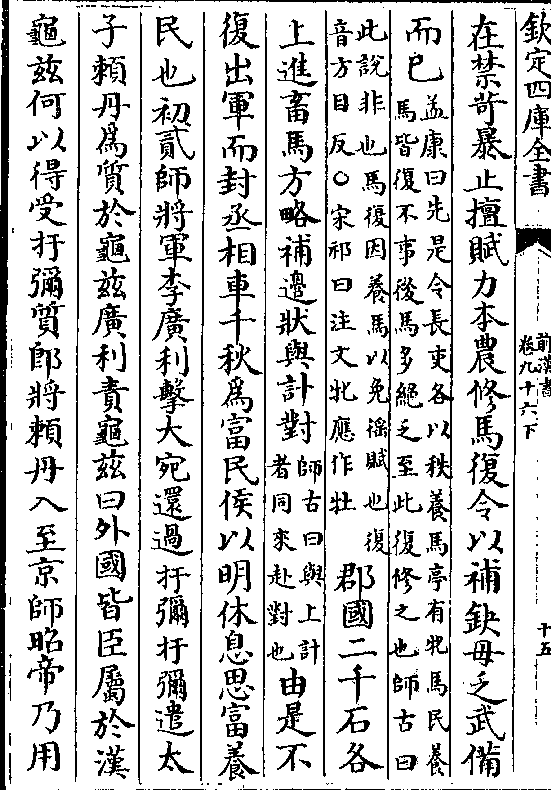 欽定四庫全書
前漢書
卷九十六下
十五
在禁苛暴止擅賦力本農修馬復令以補缺毋乏武備
而已
孟康曰先是令長吏各以秩養馬亭有牝馬民養
馬皆復不事後馬多絕乏至此復修之也師古曰
此說非也馬復因養馬以免徭賦也復
音方目反○宋祁曰注文牝應作牡
郡國二千石各
上進畜馬方略補邊狀與計對
師古曰與上計
者同來赴對也
由是不
復出軍而封丞相車千秋爲富民侯以明休息思富養
民也初貳師將軍李廣利擊大宛還過扜彌扜彌遣太
子賴丹爲質於龜兹廣利責龜兹曰外國皆臣屬於漢
龜兹何以得受扜彌質即將賴丹入至京師昭帝乃用